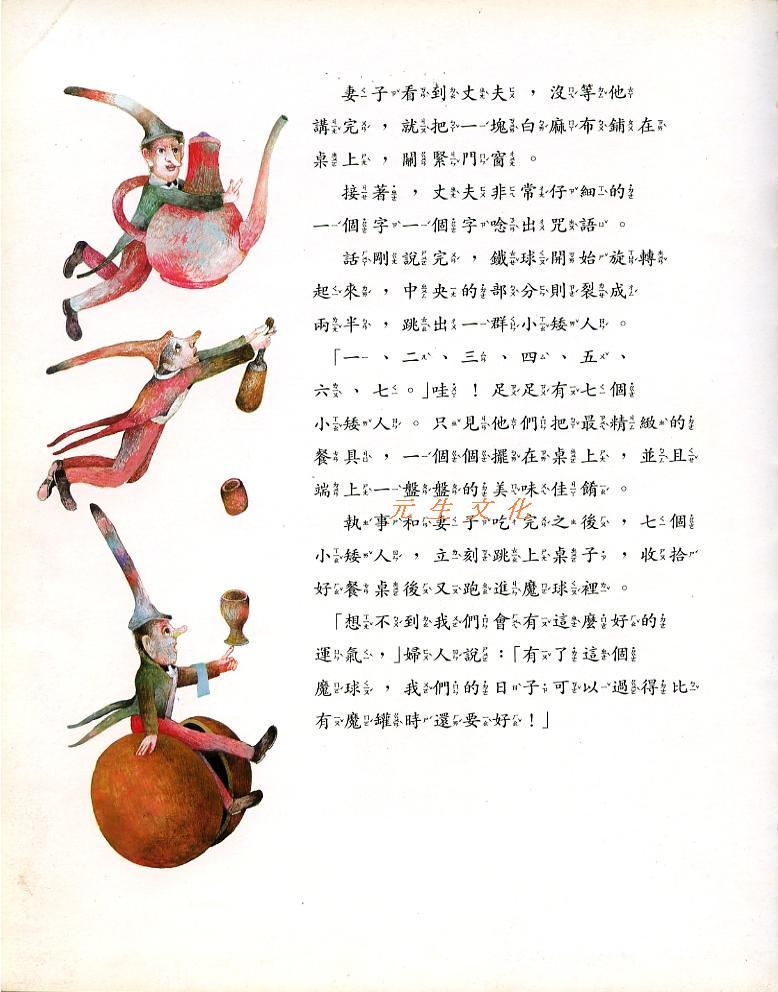 妻子看到丈夫，沒等他
講完，就把一塊白麻布鋪在
桌上，關緊門窗。
接著，丈夫非常仔細的
一個字一個字唸出咒語。
話剛說完，鐵球開始旋轉
起來，中央的部分則裂成
兩半，跳出一群小矮人。
「一、二、三、四、五、
六、七。」哇！足足有七個
小矮人。只見他們把最精緻的
餐具，一個個擺在桌上，並且
端上一盤盤的美味佳餚。
元生文化
執事和妻子吃完之後，七個
小矮人，立刻跳上桌子，收拾
好餐桌後又跑進魔球裡。
「想不到我們會有這麼好的
運氣，」婦人說：「有了這個
魔球，我們的日子可以過得比
有魔罐時還要好！」